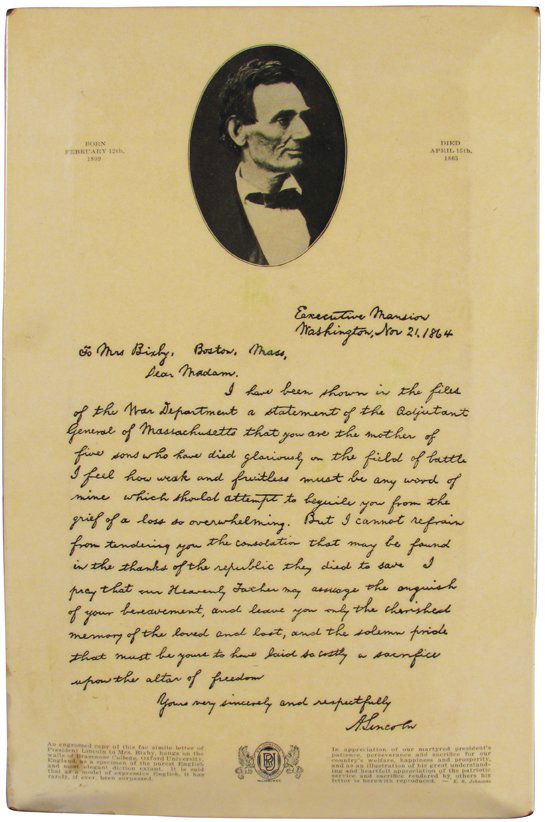 BORN
FEBRUARY 12th,
1809
DIED
APRIL 15th,
1865
Executive Mansion
Washington, Nov 21, 1864
To Mrs Bixby, Boston, Mass,
Dear Madam.
I have been shown in the files
of the War Department a statement of the Adjutant
General of Massachusetts that you are the mother of
five sons who have died gloriously on the field of battle
I feel how weak and fruitless must be any word of
mine which should attempt to beguile you from the
grief of a loss so overwhelming. But I cannot refrain
from tendering you the consolation that may be found
in the thanks of the republic they died to save I
pray that our Heavenly Father may assuage the anguish
of your bereavement, and leave you only the cherished
memory of the loved and lost, and the solemn pride
that must be yours to have laid so costly a sacrifice
upon the altar of freedom
Yours very sincerely and respectfully
A. Lincoln
An engrossed copy of this fac simile letter of
President Lincoln to Mrs. Bixby, hangs on the
walls of Brasenose College, Oxford University,
England, as a specimen of the purest English
and most elegant diction extant. It is said
that as a model of expressive English, it has
rarely, if ever, been surpassed.
In appreciation of our martyred president's
patience, perseverance and sacrifice for our
country's welfare, happiness and prosperity,
and as an illustration of his great understand-
ing and heartfelt appreciation of the patriotic
service and sacrifice rendered by others his
letter is herewith reproduced. — E. S. Johnson